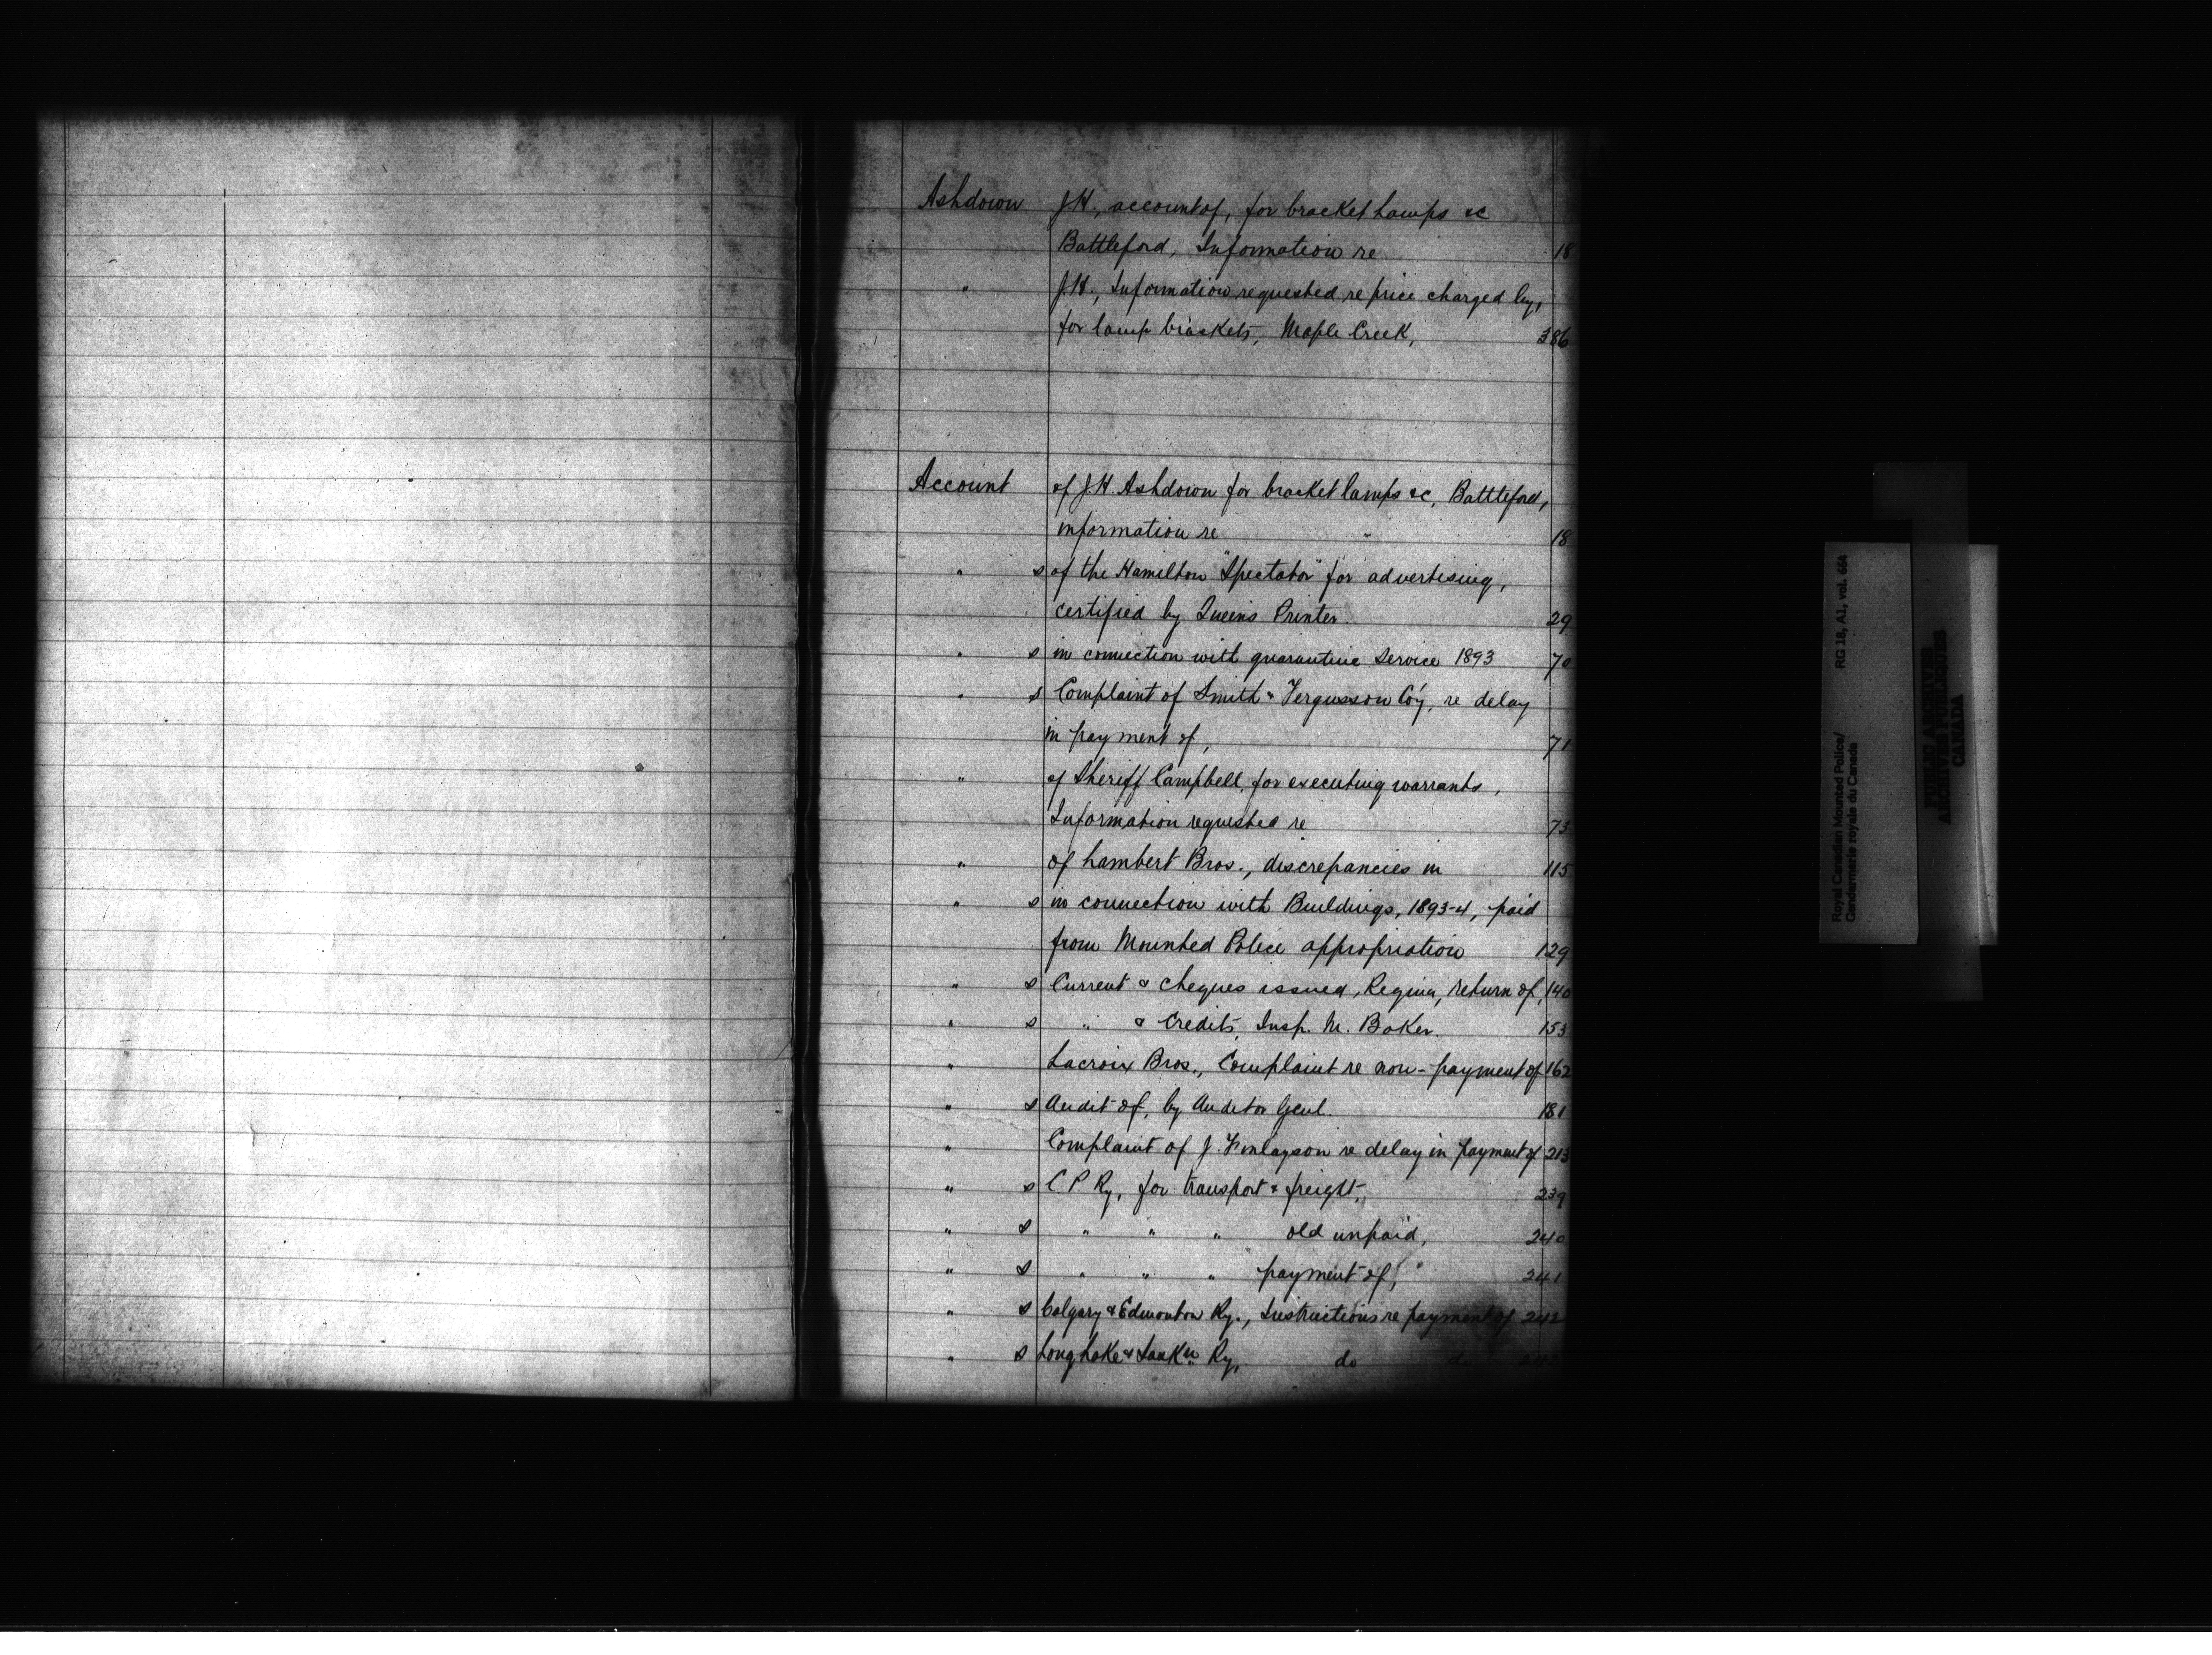 Ashdown J.H., account of, for bracket Lamps &c
Battleford, Information re 18
" J.H., Information requested re price charged by,
for lamp brackets, Maple Creek, 386
Account of J H Ashdown for bracket lamps &c, Battleford,
information re 18
" s of the Hamilton "Spectator" for advertising,
certified by Queens Printer. 29
" s in connection with quarantine Service 1893 70
" s Complaint of Smith & Fergusson Coy, re delay
in payment of, 71
" of Sheriff Campbell, for executing warrants,
Information requested re 73
" of Lambert Bros., discrepancies in 115
" s in connection with Buildings, 1893-4, paid
from Mounted Police appropriation 129
" s Current & cheques issued, Regina, return of, 140
" s " & Credits, Insp. M. Baker. 153
" Lacroix Bros., Complaint re non-payment of 162
" s Audit of, by Auditor Genl. 181
" Complaint of J. Finlayson re delay in payment of 213
" s C P Ry, for transport & freight, 239
" s " " " old unpaid, 240
" s " " " payment of, 241
" s Calgary & Edmonton Ry., Instructions re payment of 242
" s Long Lake & Sask'n Ry, do do
Royal Canadian Mounted Police/ RG 18, A1, vol. 664
Gendarmerie royale du Canada
PUBLIC ARCHIVES
ARCHIVES PUBLIQUES
CANADA